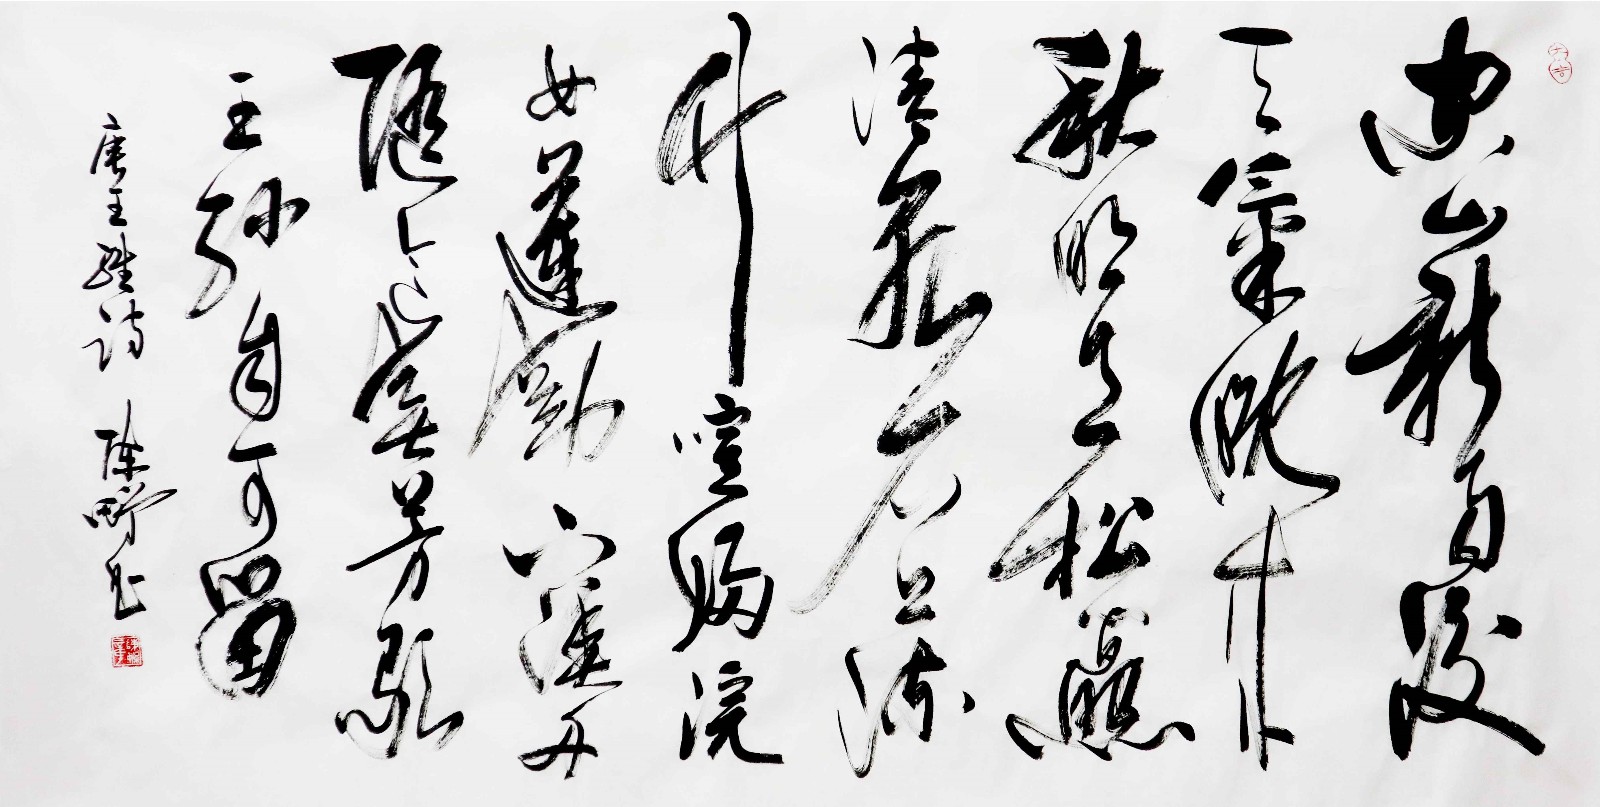 空山新雨後
天氣晚来
秋明月松間照
清泉石上流
竹喧歸浣
女蓮動下漁舟
随意春芳歇
王孫自可留
唐王維詩 陳野书